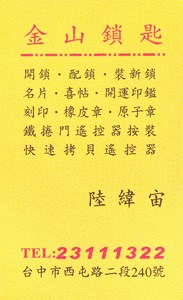 金山鎖匙
開鎖・配鎖・裝新鎖
名片・喜帖・開運印鑑
刻印・橡皮章・原子章
鐵捲門遙控器按裝
快速拷貝遙控器
陸緯宙
TEL:23111322
台中市西屯路二段240號